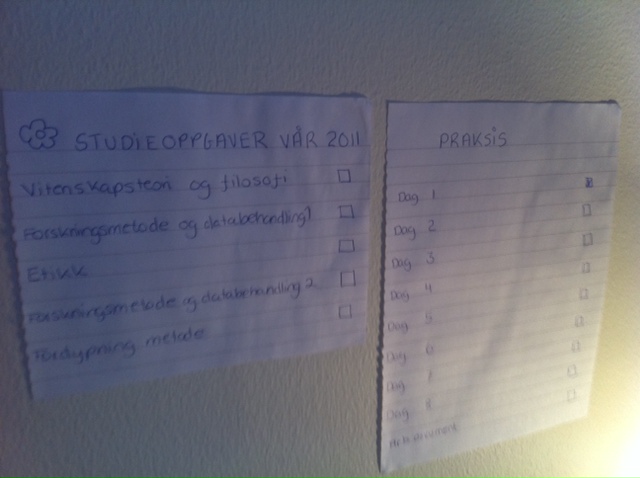 STUDIEOPPGAVER VÅR 2011
Vitenskapsteori og filosofi
Forskningsmetode og databehandling 1
Etikk
Forskningsmetode og databehandling 2
Fordypning metode
PRAKSIS
Dag 1
Dag 2
Dag 3
Dag 4
Dag 5
Dag 6
Dag 7
Dag 8